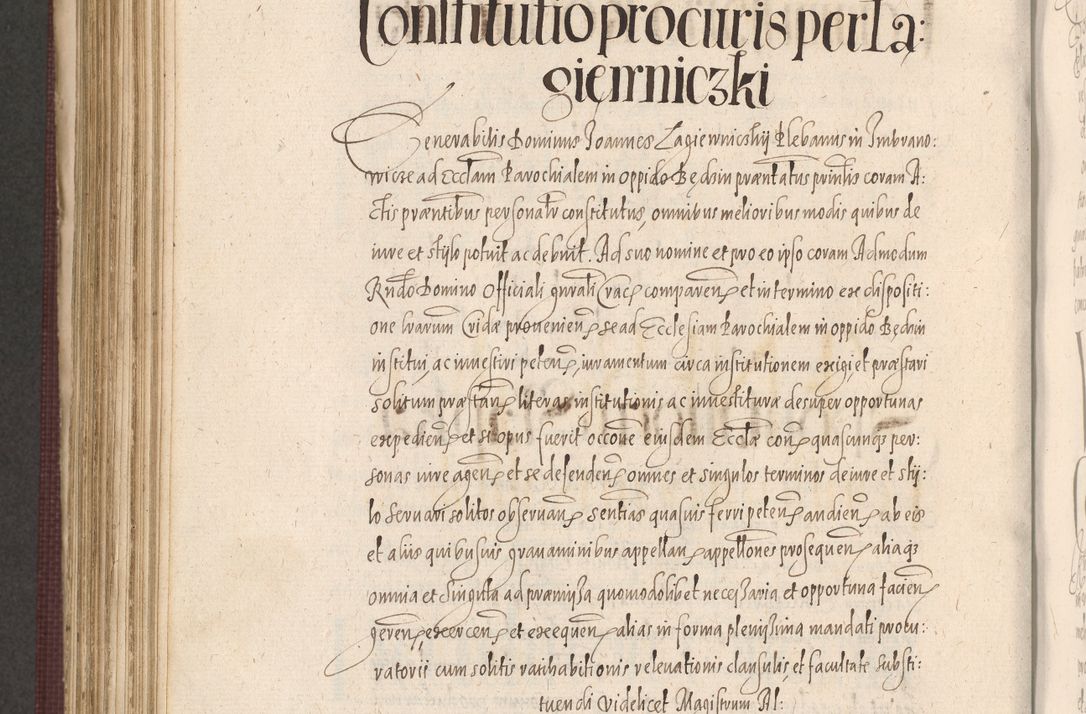 Constitutio procuris per La:
giewniczki
Venerabilis Dominus Joannes Lagiewniczkij Plebanus in Imbramo:
wicze ad Ecclam Parochialem in oppido Będzin præntatus princlis coram A:
ctis præntibus personalr constitutus, omnibus melioribus modis quibus de
iure et stylo potuit ac debuit. Ad suo nomine et pro eo ipso coram Admodum
Rndo Domino Officiali gnrali Crac: comparen: et in termino ex dispositi:
one lrarum Cridæ provenien: se ad Ecclesiam Parochialem in oppido Będzin
institui, ac investiri peten:, iuramentum circa institutionem exigi et præstari
solitum præstan: literas institutionis ac investituræ desuper opportunas
expedien: et si opus fuerit occone eiusdem Ecclæ con: quascunq3 per:
sonas iure agen: et se defenden: omnes et singulos terminos de iure et stij:
lo servari solitos observan: sentias quasvis ferri peten: audien: ab eis
et aliis quibusvis gravaminibus appellan: appellones prosequen: aliaq3
omnia et singula ad præmissa quomodolibet necessaria et opportuna facien:
geren: exercen: et exequen: alias in forma plenissima mandati procu:
ratorij cum solitis ratihabitionis relevationis clausulis, et facultate substi:
tuendi videlicet Magistrum Al: